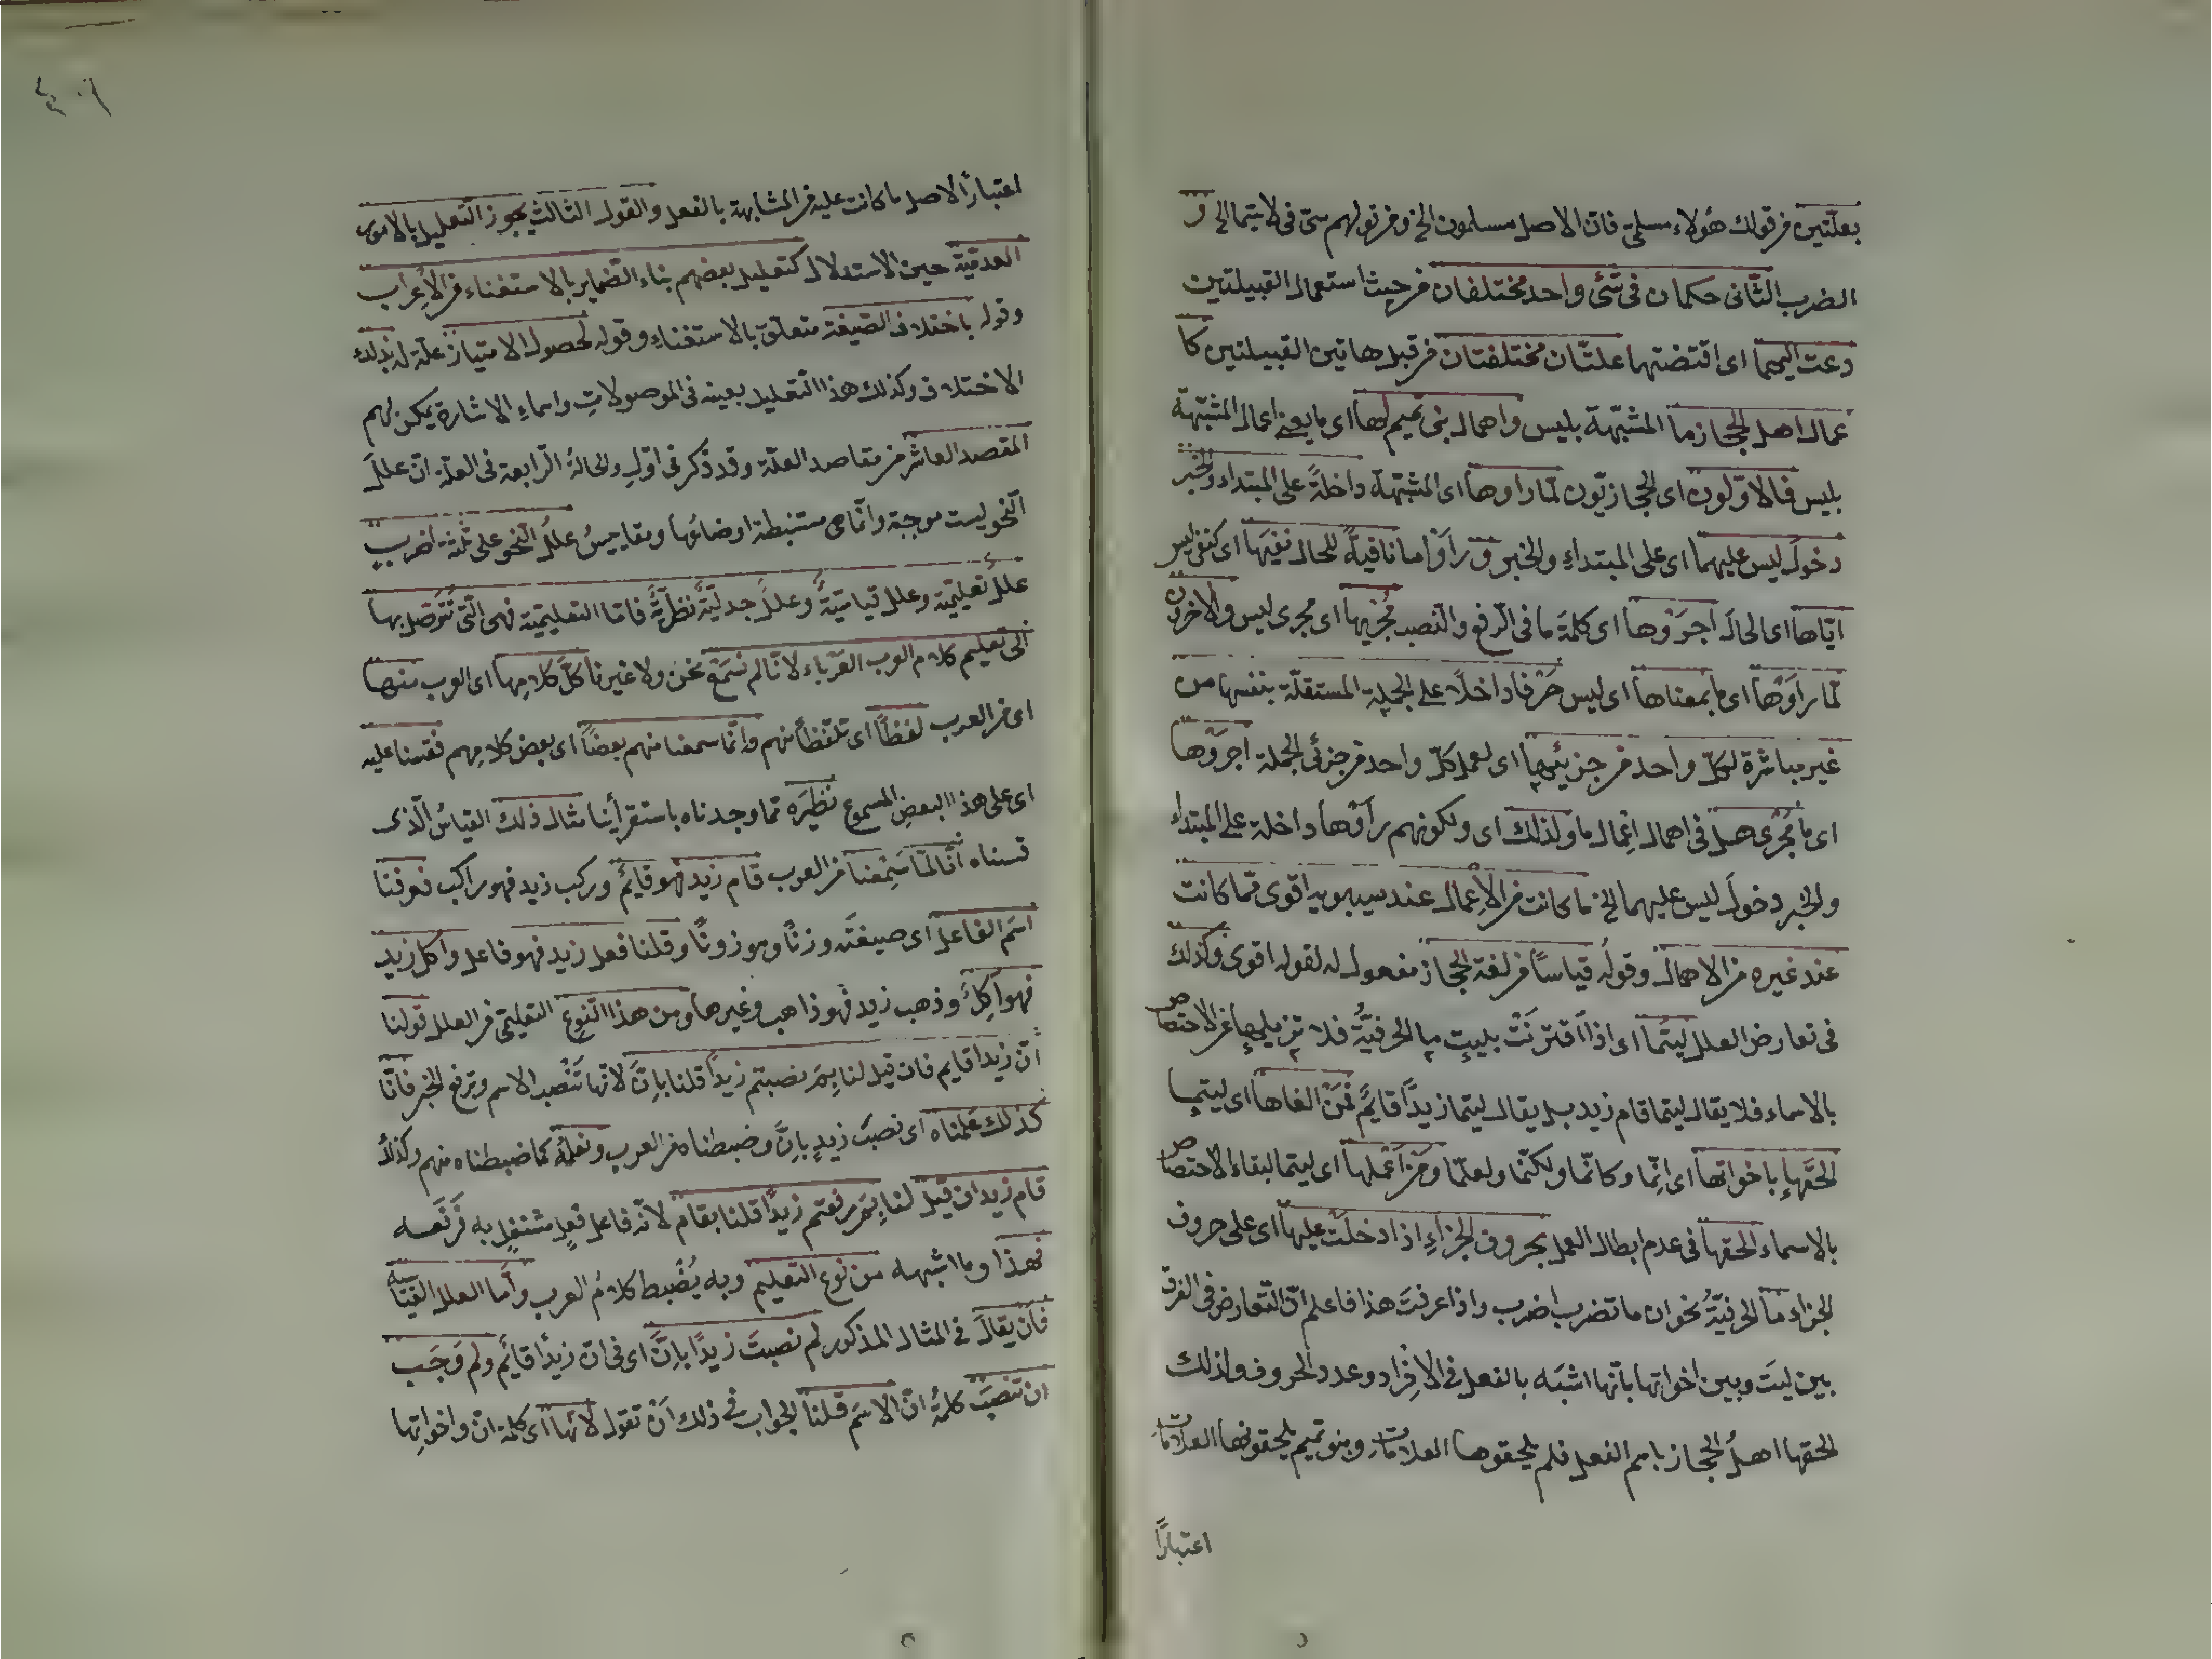 بعلّتين من قولك هؤلاء مسلمىّ فان الاصل مسلمون الخ ومن قولهم سىّ فى لاسيّما الخ و
الضرب الثانى حكمان فى شئ واحد مختلفان من حيث استعمال القبيلتين
دعت اليهما اى اقتضتهما علتان مختلفتان من قبل هاتين القبيلتين كا
عمال اهل الحجاز ما المشبّهة بليس واهمال بنى تميم لها اى ما يعنى اعمال المشبّهة
بليس فالاوّلون اى الحجازيّون لمّا راوها اى المشبّهة داخلةً على المبتداء والخبر
دخولَ ليس عليهما اى على المبتداء والخبر وراَوْا ما نافيةً للحال نفيَها اى كنفى ليس
ايّاها اى الحالَ اجرَوْها اى كلمةَ ما فى الرفع والنصب مُجريها اى مجرى ليس والاخرون
لمّا راَوْها اى ما بمعناها اى ليس حَرْفا داخلًا على الجملة المستقلّة بنفسها من
غير مباشرة لكلّ واحد من جزئيها اى لعمل كلّ واحد من جزئى الجملة اجرَوْها
اى ما مُجْرى هل فى اهمال اعمال ما ولذلك اى ولكونهم راَوْها داخلة على المبتداء
والخبر دخولَ ليس عليهما الخ ما كانت من الاِعمال عند سيبويه اقوى ممّا كانت
عند غيره من الاهمال وقولُه قياسًا من لغة الحجاز مفعول له لقوله اقوى وكذلك
فى تعارض العلل ليتَما اى اذا اقترنَتْ بليت ما الحرفيّةُ فلا تزيلها عن الاختصاص
بالاسماء فلا يقال ليتما قام زيد بل يقال ليتما زيدًا قائمٌ فمَنْ الغاها اى ليتما
الحقَها باخواتها اى انّما وكانّما ولكنّما ولعلّما ومن اَعْملها اى ليتما لبقاء الاختصاص
بالاسماء الحقها فى عدم ابطال العمل بحروف الجزاءِ اذا دخلَتْ عليها اى على حروف
الجزاء ما الحرفيّةُ نحو ان ما تضرب اضرب واذا عرفتَ هذا فاعلم انّ التعارض فى الفرق
بين ليتَ وبين اخواتها بانّها اشبَه بالفعل فى الاِفْراد وعدد الحروف ولذلك
الحقها اهلُ الحجاز باسم الفعل فلم يلحقوها العلامات وبنو تميم يلحقونها العلامات
اعتبارًا
اعتبارًا لاصل ما كانت عليه من المشابهة بالفعل والقول الثالث يجوز التعليل بالامور
العدميّة حين الاستدلال كتعليل بعضهم بناء الضماير بالاستغناء من الاِعراب
وقوله باختلاف الصيغة متعلّق بالاستغناء وقوله لحصول الامتياز علّة له بذلك
الاختلاف وكذلك هذا التعليل بعينه فى الموصولاتِ واسماءِ الاشارة يمكن لهم
المقصد العاشر من مقاصد العلّة وقد ذكر فى اوّلِ والحالةُ الرّابعة فى العلّة انّ عللَ
النحو ليست موجبة وانّما هى مستنبطة اوضاعُها ومقاييسُ عللُ النّحو على ثلثة اضربٍ
عللُ تعليميّة وعللٌ قياسيّةٌ وعللٌ جدليّةٌ نظرّيةٌ فامّا التعليميّة فهى الّتى نتوصل بها
الى تعليم كلام العرب العرباء لانّا لم نسمَعْ نحن ولا غيرنا كلَّ كلامِها اى العرب منها
اى من العرب لفظًا اى تلفّظًا منهم وانّما سمعنا منهم بعضًا اى بعض كلامِهم فقسنا عليه
اى على هذا البعضِ المسموع نظيرَه ممّا وجدناه باستقرأينا مثال ذلك القياسُ الّذى
قسناه انّا لمّا سَمِعْنا من العرب قام زيد فهو قايمٌ وركب زيد فهو راكب فعرفنا
اسم الفاعل اى صيغتَه وزنًا وموزونًا وقلنا فعل زيد فهو فاعل واكل زيد
فهو آكلٌ وذهب زيد فهو ذاهب وغيرها ومن هذا النوع التعليمىّ من العلل قولنا
انّ زيدا قايم فان قيل لنا بِمَ نصبتم زيدًا قلنا بانَّ لانّها تَنْصب الاسم وترفع الخبر فانّا
كذلك عَلمناه اى نصبَ زيدٍ بانَّ وضبطناه من العرب ونعلمُه كما ضبطناه منهم وكذلك
قام زيد ان قيل لنا بِمَ رفعتم زيدًا قلنا بقام لانّه فاعل فعلٍ مشتغلٍ به فَرَفَعه
فهذا وما اشبهه من نوع التعليم وبه يُضْبط كلامُ العرب وامّا العلل القياسيّة
فاَن يقالَ فى المثال المذكور لم نصبتَ زيدًا بانَّ اى فى انّ زيدًا قائم ولم وَجَب
ان تنصبَ كلمةُ انّ الاسَم قلنا الجواب فى ذلك اَنْ تقول لانّها اى كلمة انّ واخواتِها